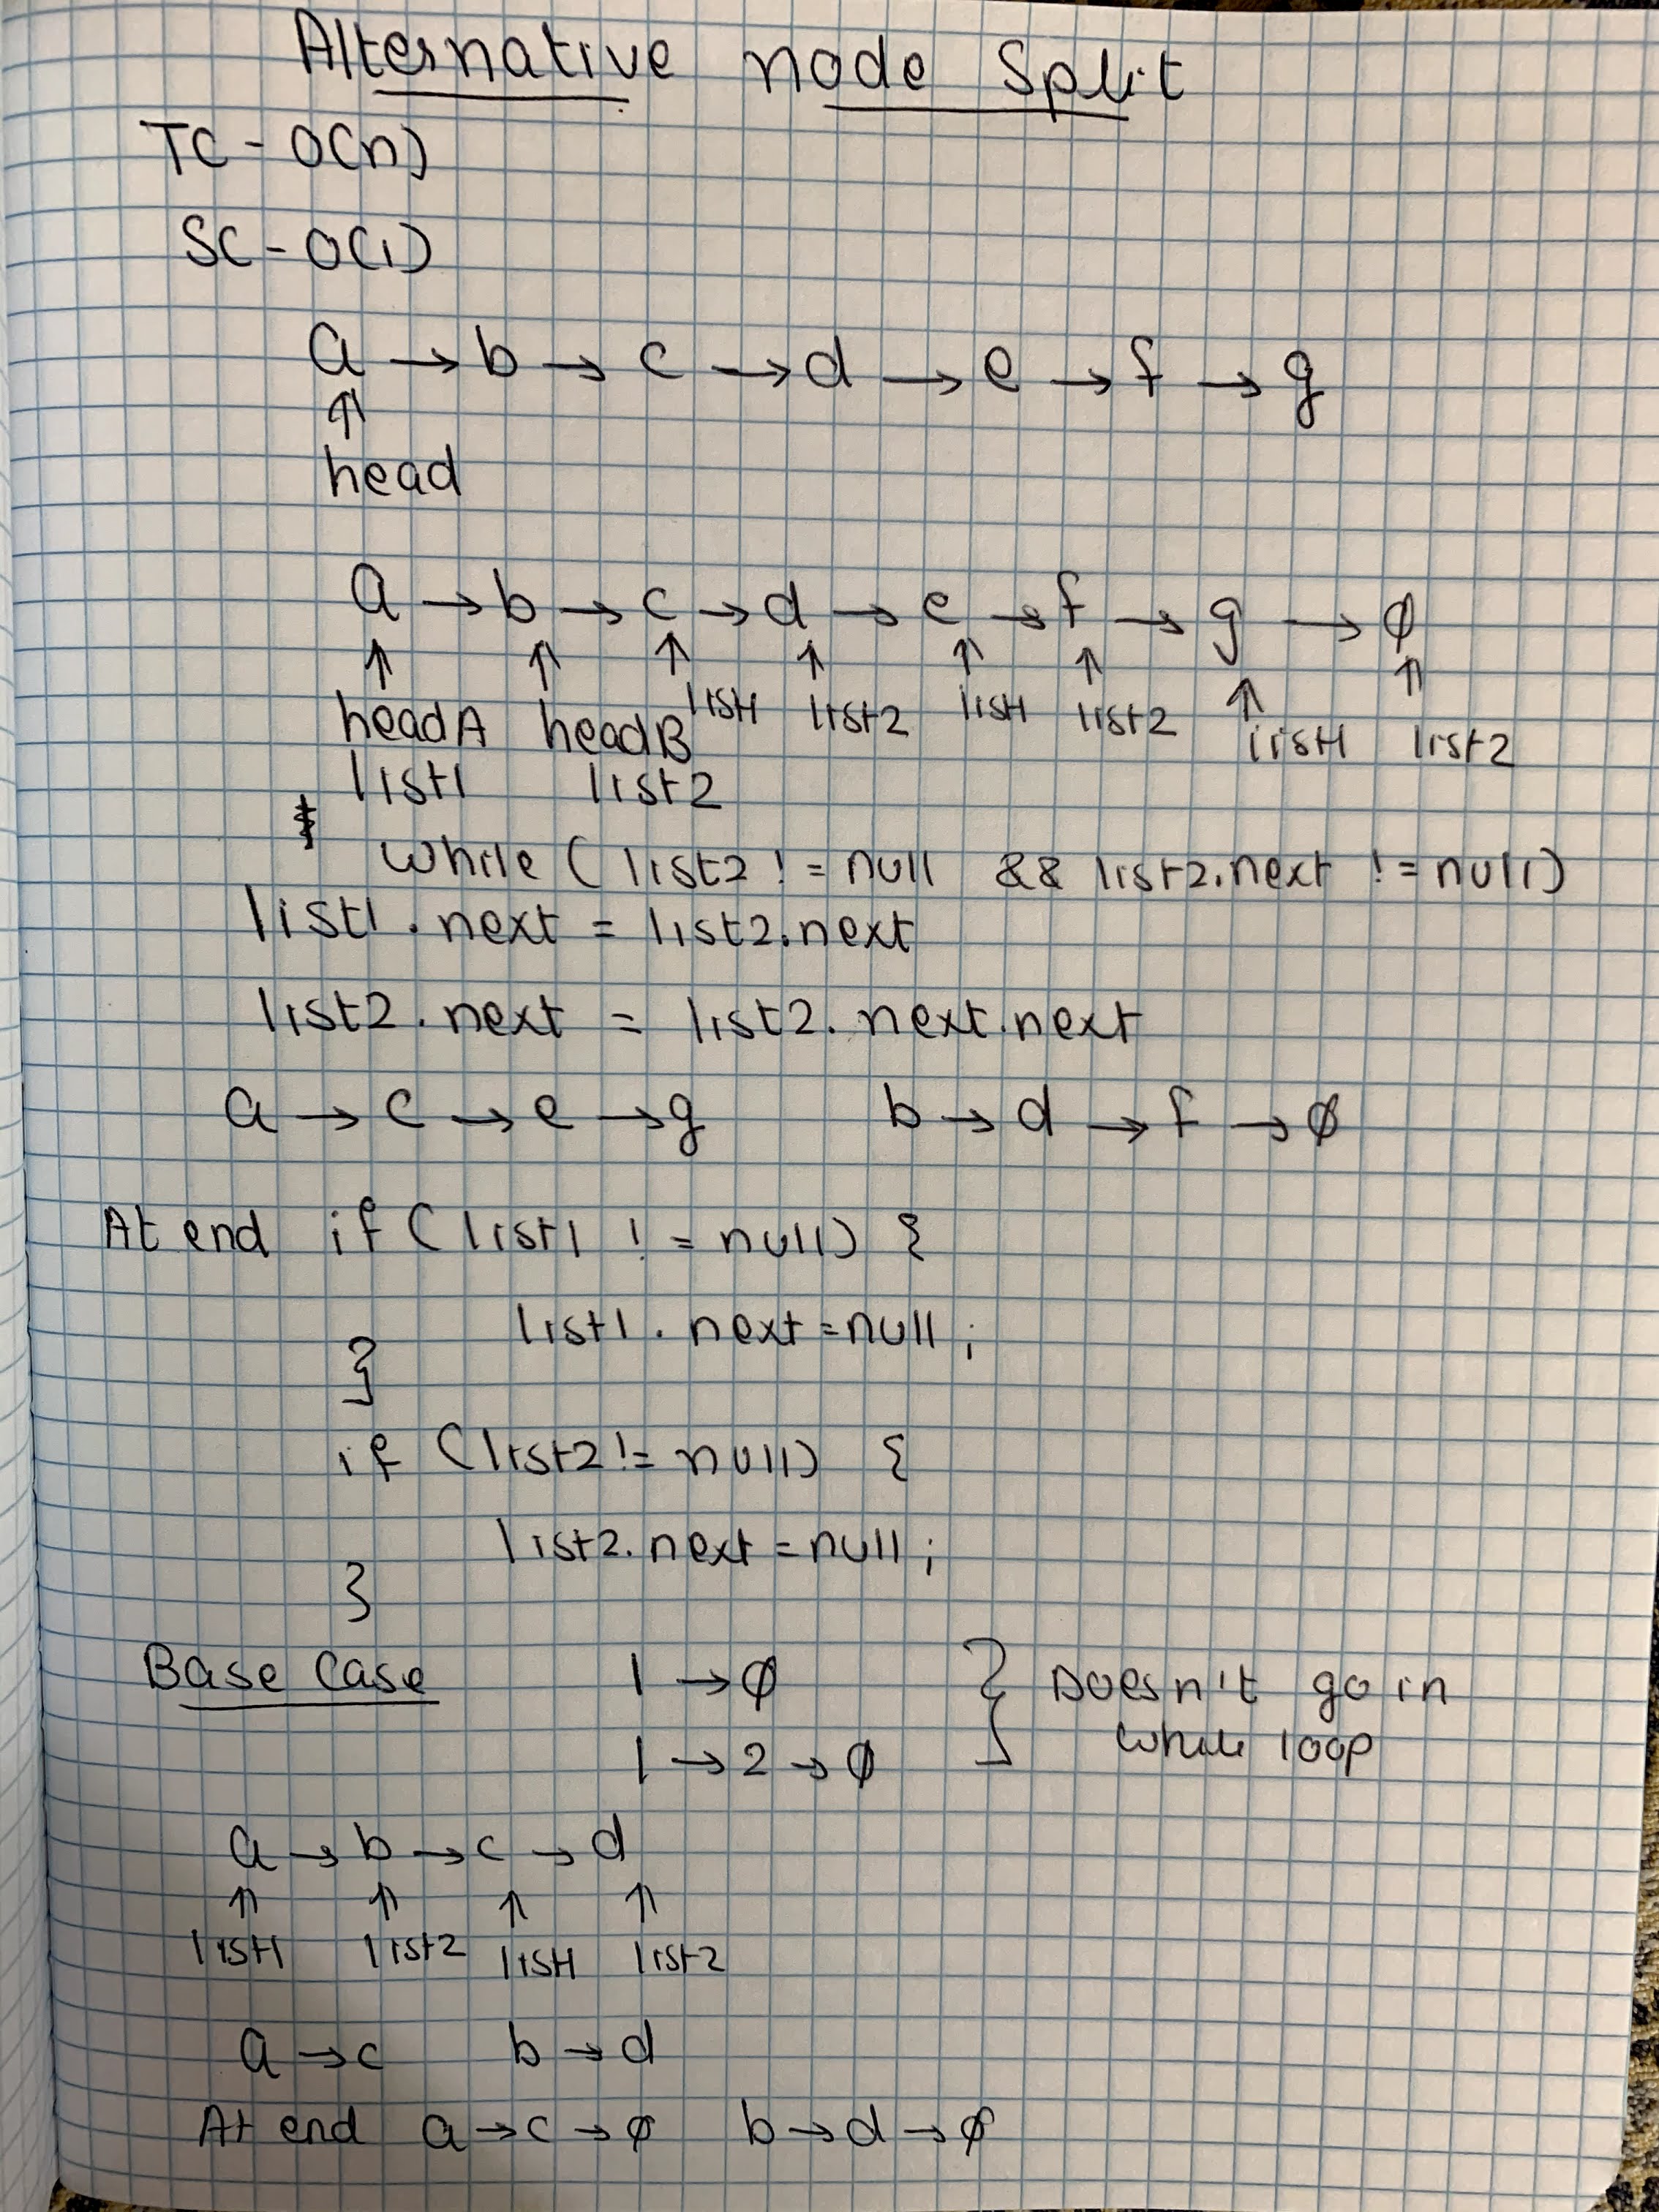 Alternative node Split
TC - O(n)
SC - O(1)
a → b → c → d → e → f → g
↑
head
a → b → c → d → e → f → g → ∅
↑ ↑ ↑ ↑ ↑ ↑ ↑ ↑
headA headB list1 list2 list1 list2 list1 list2
list1 list2
while ( list2 != null && list2.next != null)
list1.next = list2.next
list2.next = list2.next.next
a → c → e → g b → d → f → ∅
At end if ( list1 != null) {
list1.next = null;
}
if (list2 != null) {
list2.next = null;
}
Base Case 1 → ∅ } Doesn't go in
1 → 2 → ∅ while loop
a → b → c → d
↑ ↑ ↑ ↑
list1 list2 list1 list2
a → c b → d
At end a → c → ∅ b → d → ∅